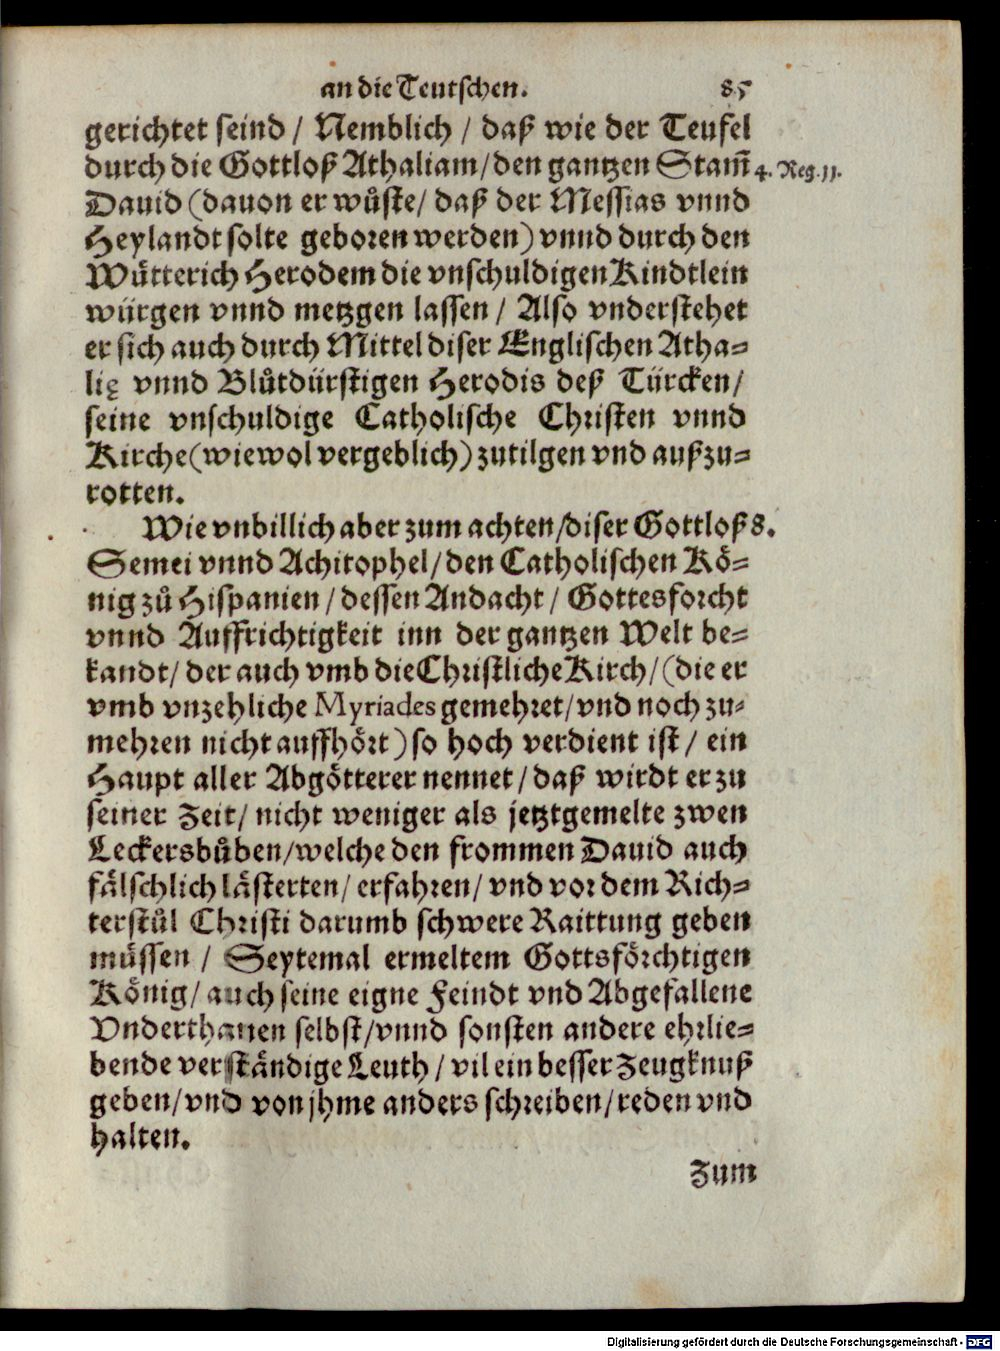 an die Teutschen. 85
gerichtet seind / Nemblich / daß wie der Teufel
durch die Gottloß Athaliam / den gantzen Stam̃ 4. Reg. 11.
Dauid (dauon er wůste / daß der Messias vnnd
Heylandt solte geboren werden) vnnd durch den
Wůtterich Herodem die vnschuldigen Kindtlein
würgen vnnd metzgen lassen / Also vnderstehet
er sich auch durch Mittel diser Englischen Atha-
lię vnnd Blůtdürstigen Herodis deß Türcken /
seine vnschuldige Catholische Christen vnnd
Kirche (wiewol vergeblich) zutilgen vnd außzu-
rotten.
Wie vnbillich aber zum achten / diser Gottloß 8.
Semei vnnd Achitophel / den Catholischen Kö-
nig zů Hispanien / dessen Andacht / Gottesforcht
vnnd Auffrichtigkeit inn der gantzen Welt be-
kandt / der auch vmb die Christliche Kirch / (die er
vmb vnzehliche Myriades gemehret / vnd noch zu-
mehren nicht auffhört) so hoch verdient ist / ein
Haupt aller Abgötterer nennet / daß wirdt er zu
seiner Zeit / nicht weniger als jetztgemelte zwen
Leckersbůben / welche den frommen Dauid auch
fälschlich lästerten / erfahren / vnd vor dem Rich-
terstůl Christi darumb schwere Raittung geben
müssen / Seytemal ermeltem Gottsförchtigen
König / auch seine eigne Feindt vnd Abgefallene
Vnderthanen selbst / vnnd sonsten andere ehrlie-
bende verständige Leuth / vil ein besser Zeugknuß
geben / vnd von jhme anders schreiben / reden vnd
halten.
Zum
Digitalisierung gefördert durch die Deutsche Forschungsgemeinschaft - DFG